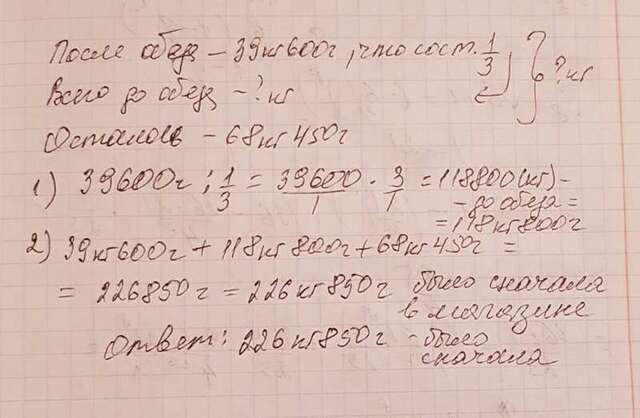 После обед – 39кг600г, что сост. 1/3
Всего до обед – ? кг
? кг
Осталось – 68кг 450г
1) 39600г : 1/3 = 39600/1 · 3/1 = 118800(кг) –
– до обеда =
= 118кг800г
2) 39кг600г + 118кг800г + 68кг450г =
= 226850г = 226кг850г было сначала
в магазине
Ответ: 226кг850г – было
сначала